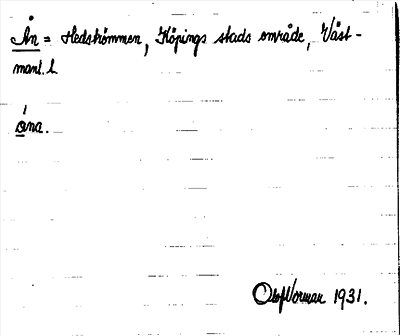 Ån = Hedströmmen, Köpings stads område, Väst-
manl. l.
ɷna.
Olof Norman 1931.